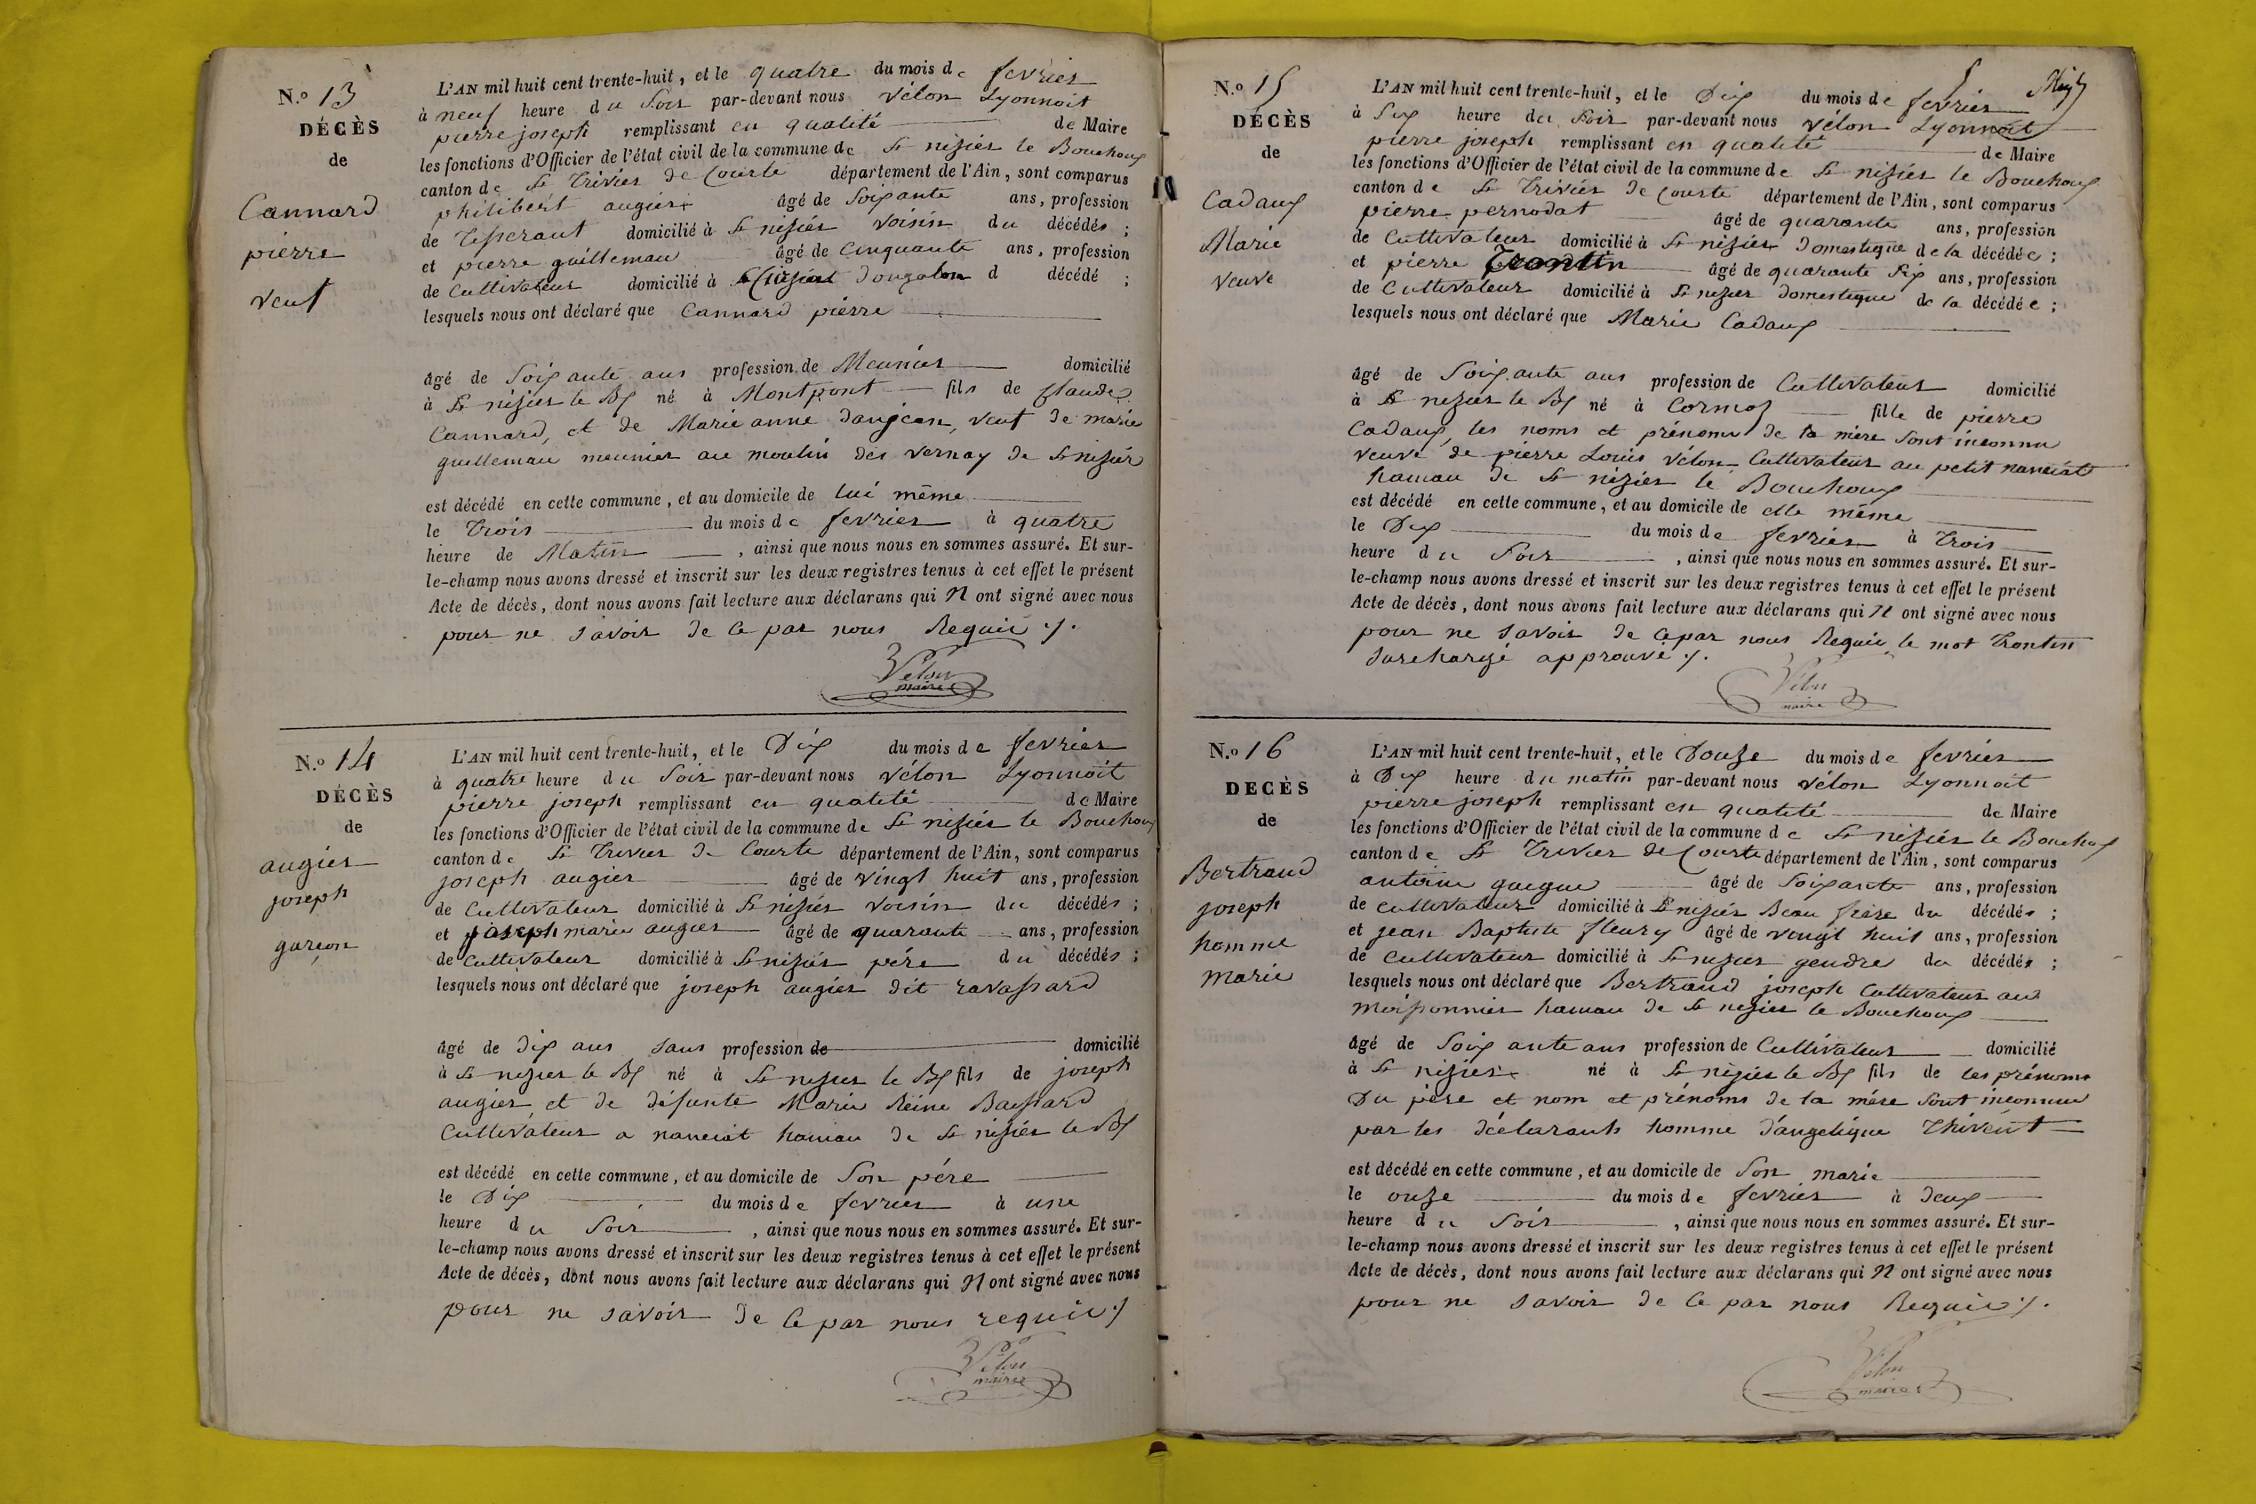 N.o 13
DÉCÈS
de
Cannard
pierre
veuf
L'AN mil huit cent trente-huit, et le quatre du mois de fevrier
à neuf heure du Soir par-devant nous vélon Lyonnoit
pierre joseph remplissant en qualité de Maire
les fonctions d'Officier de l'état civil de la commune de St nizier le Bouchoux
canton de St Trivier de Courte département de l'Ain, sont comparus
philibert augier âgé de Soixante ans, profession
de Tisserant domicilié à St nizier voisin du décédés ;
et pierre guilleman âgé de Cinquante ans, profession
de Cultivateur domicilié à d décédé ;
lesquels nous ont déclaré que Cannard pierre
âgé de Soixante ans profession de Meunier domicilié
à St nizier le Bx né à Montpont fils de Claude
Cannard, et de Marie anne daujean, veuf de marie
guilleman meunier au moulin des vernay de St nizier
est décédé en cette commune, et au domicile de lui même
le Trois du mois de fevrier à quatre
heure de Matin, ainsi que nous nous en sommes assuré. Et sur-
le-champ nous avons dressé et inscrit sur les deux registres tenus à cet effet le présent
Acte de décès, dont nous avons fait lecture aux déclarans qui N ont signé avec nous
pour ne savoir de ce par nous Requie ./.
Vélon
maire
N.o 14
DÉCÈS
de
augier
joseph
garçon
L'AN mil huit cent trente-huit, et le Dix du mois de fevrier
à quatre heure du Soir par-devant nous vélon Lyonnoit
pierre joseph remplissant en qualité de Maire
les fonctions d'Officier de l'état civil de la commune de St nizier le Bouchoux
canton de St Trivier de Courte département de l'Ain, sont comparus
joseph augier âgé de vingt huit ans, profession
de Cultivateur domicilié à St nizier voisin du décédés ;
et joseph marie augier âgé de quarante ans, profession
de Cultivateur domicilié à St nizier père du décédés ;
lesquels nous ont déclaré que joseph augier dit ravassard
âgé de dix ans sans profession de domicilié
à St nizier le Bx né à St nizier le Bx fils de joseph
augier et de defunte Marie Reine Bassard
Cultivateur a nanciat hamau de St nizier le Bx
est décédé en cette commune, et au domicile de Son père
le Dix du mois de fevrier à une
heure du Soir, ainsi que nous nous en sommes assuré. Et sur-
le-champ nous avons dressé et inscrit sur les deux registres tenus à cet effet le présent
Acte de décès, dont nous avons fait lecture aux déclarans qui N ont signé avec nous
pour ne savoir de ce par nous requie ./
Vélon
maire
N.o 15
DÉCÈS
de
Cadaux
Marie
veuve
5
L'AN mil huit cent trente-huit, et le Dix du mois de fevrier
à Six heure du Soir par-devant nous vélon Lyonnoit
pierre joseph remplissant en qualité de Maire
les fonctions d'Officier de l'état civil de la commune de St nizier le Bouchoux
canton de St Trivier de Courte département de l'Ain, sont comparus
pierre pernodat âgé de quarante ans, profession
de Cultivateur domicilié à St nizier domestique de la décédée ;
et pierre Trontin âgé de quarante six ans, profession
de Cultivateur domicilié à St nizier domestique de la décédée ;
lesquels nous ont déclaré que Marie Cadaux
âgé de Soixante ans profession de Cultivateur domicilié
à St nizier le Bx né à Cormoz fille de pierre
Cadaux, les noms et prénoms de la mère sont inconnu
veuve de pierre Louis vélon Cultivateur au petit nanciat
hamau de St nizier le Bouchoux
est décédé en cette commune, et au domicile de elle même
le Dix du mois de fevrier à Trois
heure du Soir, ainsi que nous nous en sommes assuré. Et sur-
le-champ nous avons dressé et inscrit sur les deux registres tenus à cet effet le présent
Acte de décès, dont nous avons fait lecture aux déclarans qui N ont signé avec nous
pour ne savoir de ce par nous Requie, le mot Trontin
surchargé approuvé ./.
Vélon
maire
N.o 16
DECÈS
de
Bertrand
joseph
homme
marie
L'AN mil huit cent trente-huit, et le Douze du mois de fevrier
à Dix heure du matin par-devant nous vélon Lyonnoit
pierre joseph remplissant en qualité de Maire
les fonctions d'Officier de l'état civil de la commune de St nizier le Bouchoux
canton de St Trivier de Courte département de l'Ain, sont comparus
antoine guigue âgé de Soixante ans, profession
de cultivateur domicilié à St nizier Beau frère du décédés ;
et jean Baptiste fleury âgé de vingt huit ans, profession
de Cultivateur domicilié à St nizier gendre du décédés ;
lesquels nous ont déclaré que Bertrand joseph Cultivateur au
moissonnier hamau de St nizier le Bouchoux
âgé de Soixante ans profession de Cultivateur domicilié
à St nizier né à St nizier le Bx fils de les prénoms
Du père et nom et prénoms de la mére sont inconnu
par les déclarants homme d'angelique Thivent
est décédé en cette commune, et au domicile de Son marie
le onze du mois de fevrier à deux
heure du Soir, ainsi que nous nous en sommes assuré. Et sur-
le-champ nous avons dressé et inscrit sur les deux registres tenus à cet effet le présent
Acte de décès, dont nous avons fait lecture aux déclarans qui N ont signé avec nous
pour ne savoir de ce par nous Requie ./.
Vélon
maire